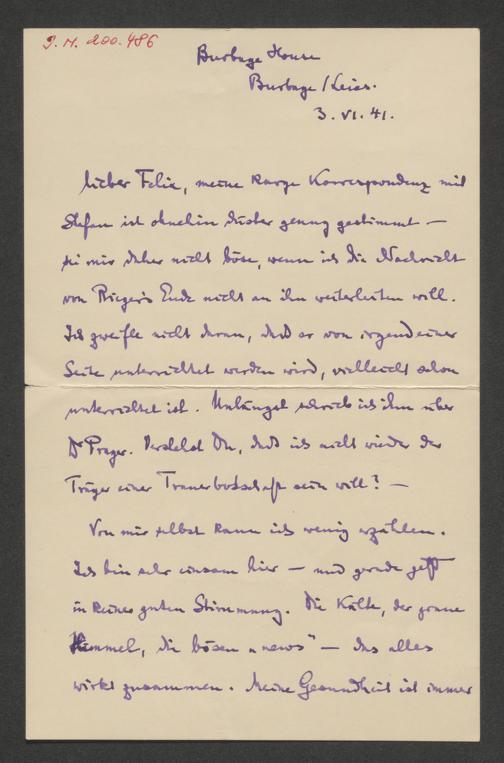 I. N. 200.486
Burbage House
Burbage / Leics.
3. VI. 41.
Lieber Felix, meine karge Korrespondenz mit
Stefan ist ohnehin düster genug gestimmt —
sei mir daher nicht böse, wenn ich die Nachricht
von Rieger's Ende nicht an ihn weiterleiten will.
Ich zweifle nicht daran, daß er von irgendeiner
Seite unterrichtet werden wird, vielleicht schon
unterrichtet ist. Unlängst schrieb ich ihm über
Dr Prager. Verstehst Du, daß ich nicht wieder der
Träger einer Trauerbotschaft sein will? —
Von mir selbst kann ich wenig erzählen.
Ich bin sehr einsam hier — und gerade
in keiner guten Stimmung. Die Kälte, der graue
Himmel, die bösen „news" — das alles
wirkt zusammen. Meine Gesundheit ist immer